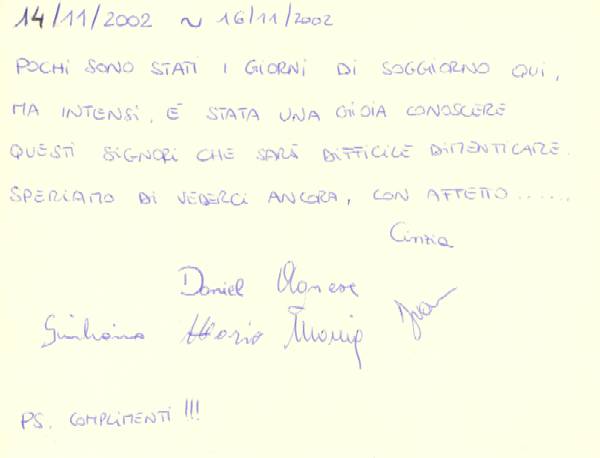 14/11/2002 ~ 16/11/2002
POCHI SONO STATI I GIORNI DI SOGGIORNO QUI,
MA INTENSI, È STATA UNA GIOIA CONOSCERE
QUESTI SIGNORI CHE SARÀ DIFFICILE DIMENTICARE.
SPERIAMO DI VEDERCI ANCORA, CON AFFETTO......
Cinzia
Daniel Agnese
Giuliana
PS. COMPLIMENTI !!!